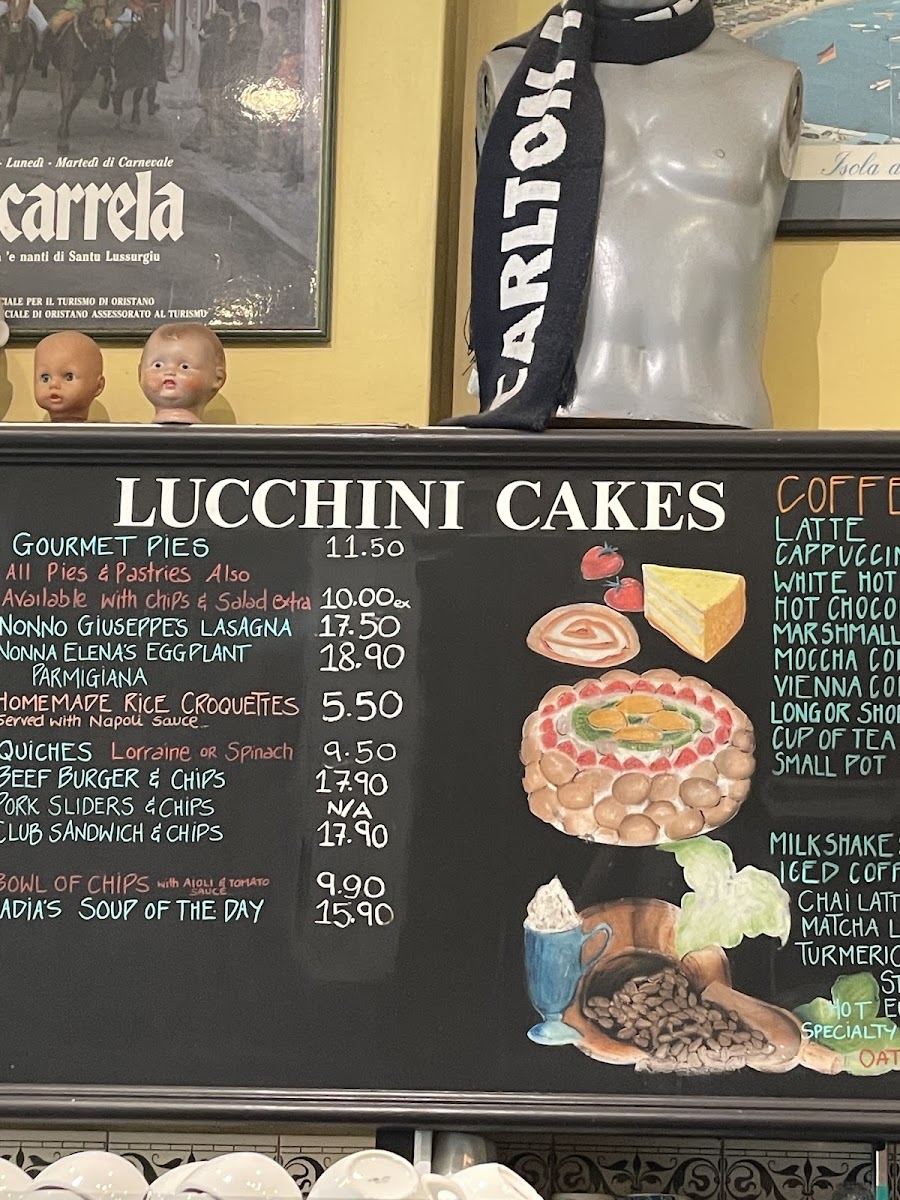 - Lunedì - Martedì di Carnevale
carrela
'e nanti di Santu Lussurgiu
CIALE PER IL TURISMO DI ORISTANO
CIALE DI ORISTANO ASSESSORATO AL TURISMO
CARLTON
Isola d
LUCCHINI CAKES
GOURMET PIES 11.50
All Pies & Pastries Also
Available with chips & Salad extra 10.00 ex
NONNO GIUSEPPE'S LASAGNA 17.50
NONNA ELENA'S EGGPLANT 18.90
PARMIGIANA
HOMEMADE RICE CROQUETTES 5.50
Served with Napoli sauce
QUICHES Lorraine OR Spinach 9.50
BEEF BURGER & CHIPS 17.90
PORK SLIDERS & CHIPS N/A
CLUB SANDWICH & CHIPS 17.90
BOWL OF CHIPS with AIOLI & TOMATO SAUCE 9.90
ADIA'S SOUP OF THE DAY 15.90
COFFE
LATTE
CAPPUCCIN
WHITE HOT
HOT CHOCO
MARSHMALL
MOCCHA CO
VIENNA CO
LONG OR SHO
CUP OF TEA
SMALL POT
MILKSHAKES
ICED COFF
CHAI LATT
MATCHA L
TURMERIC
ST
HOT
SPECIALTY
OAT